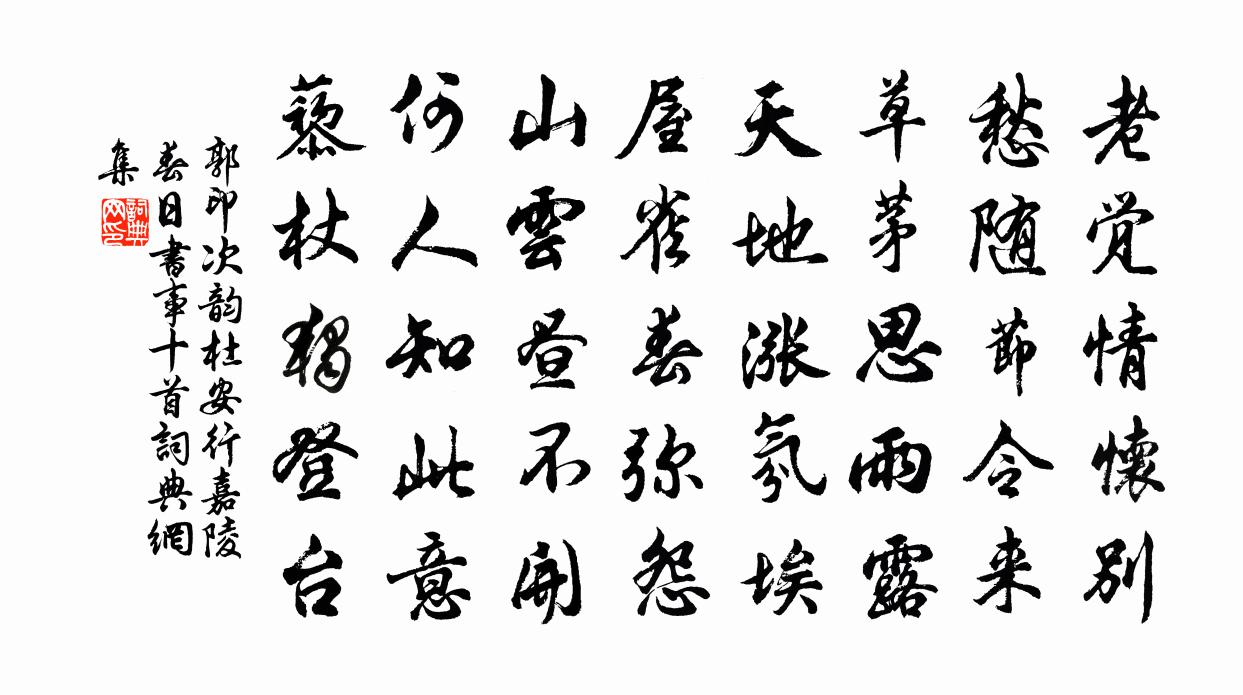 老觉情懷别
愁随節令来
草茅思雨露
天地漲氛埃
屋雀春弥怨
山雲昼不開
何人知此意
藜杖独登台
郭印次韵杜安行嘉陵
春日書事十首詞典網
集
詞典
网印